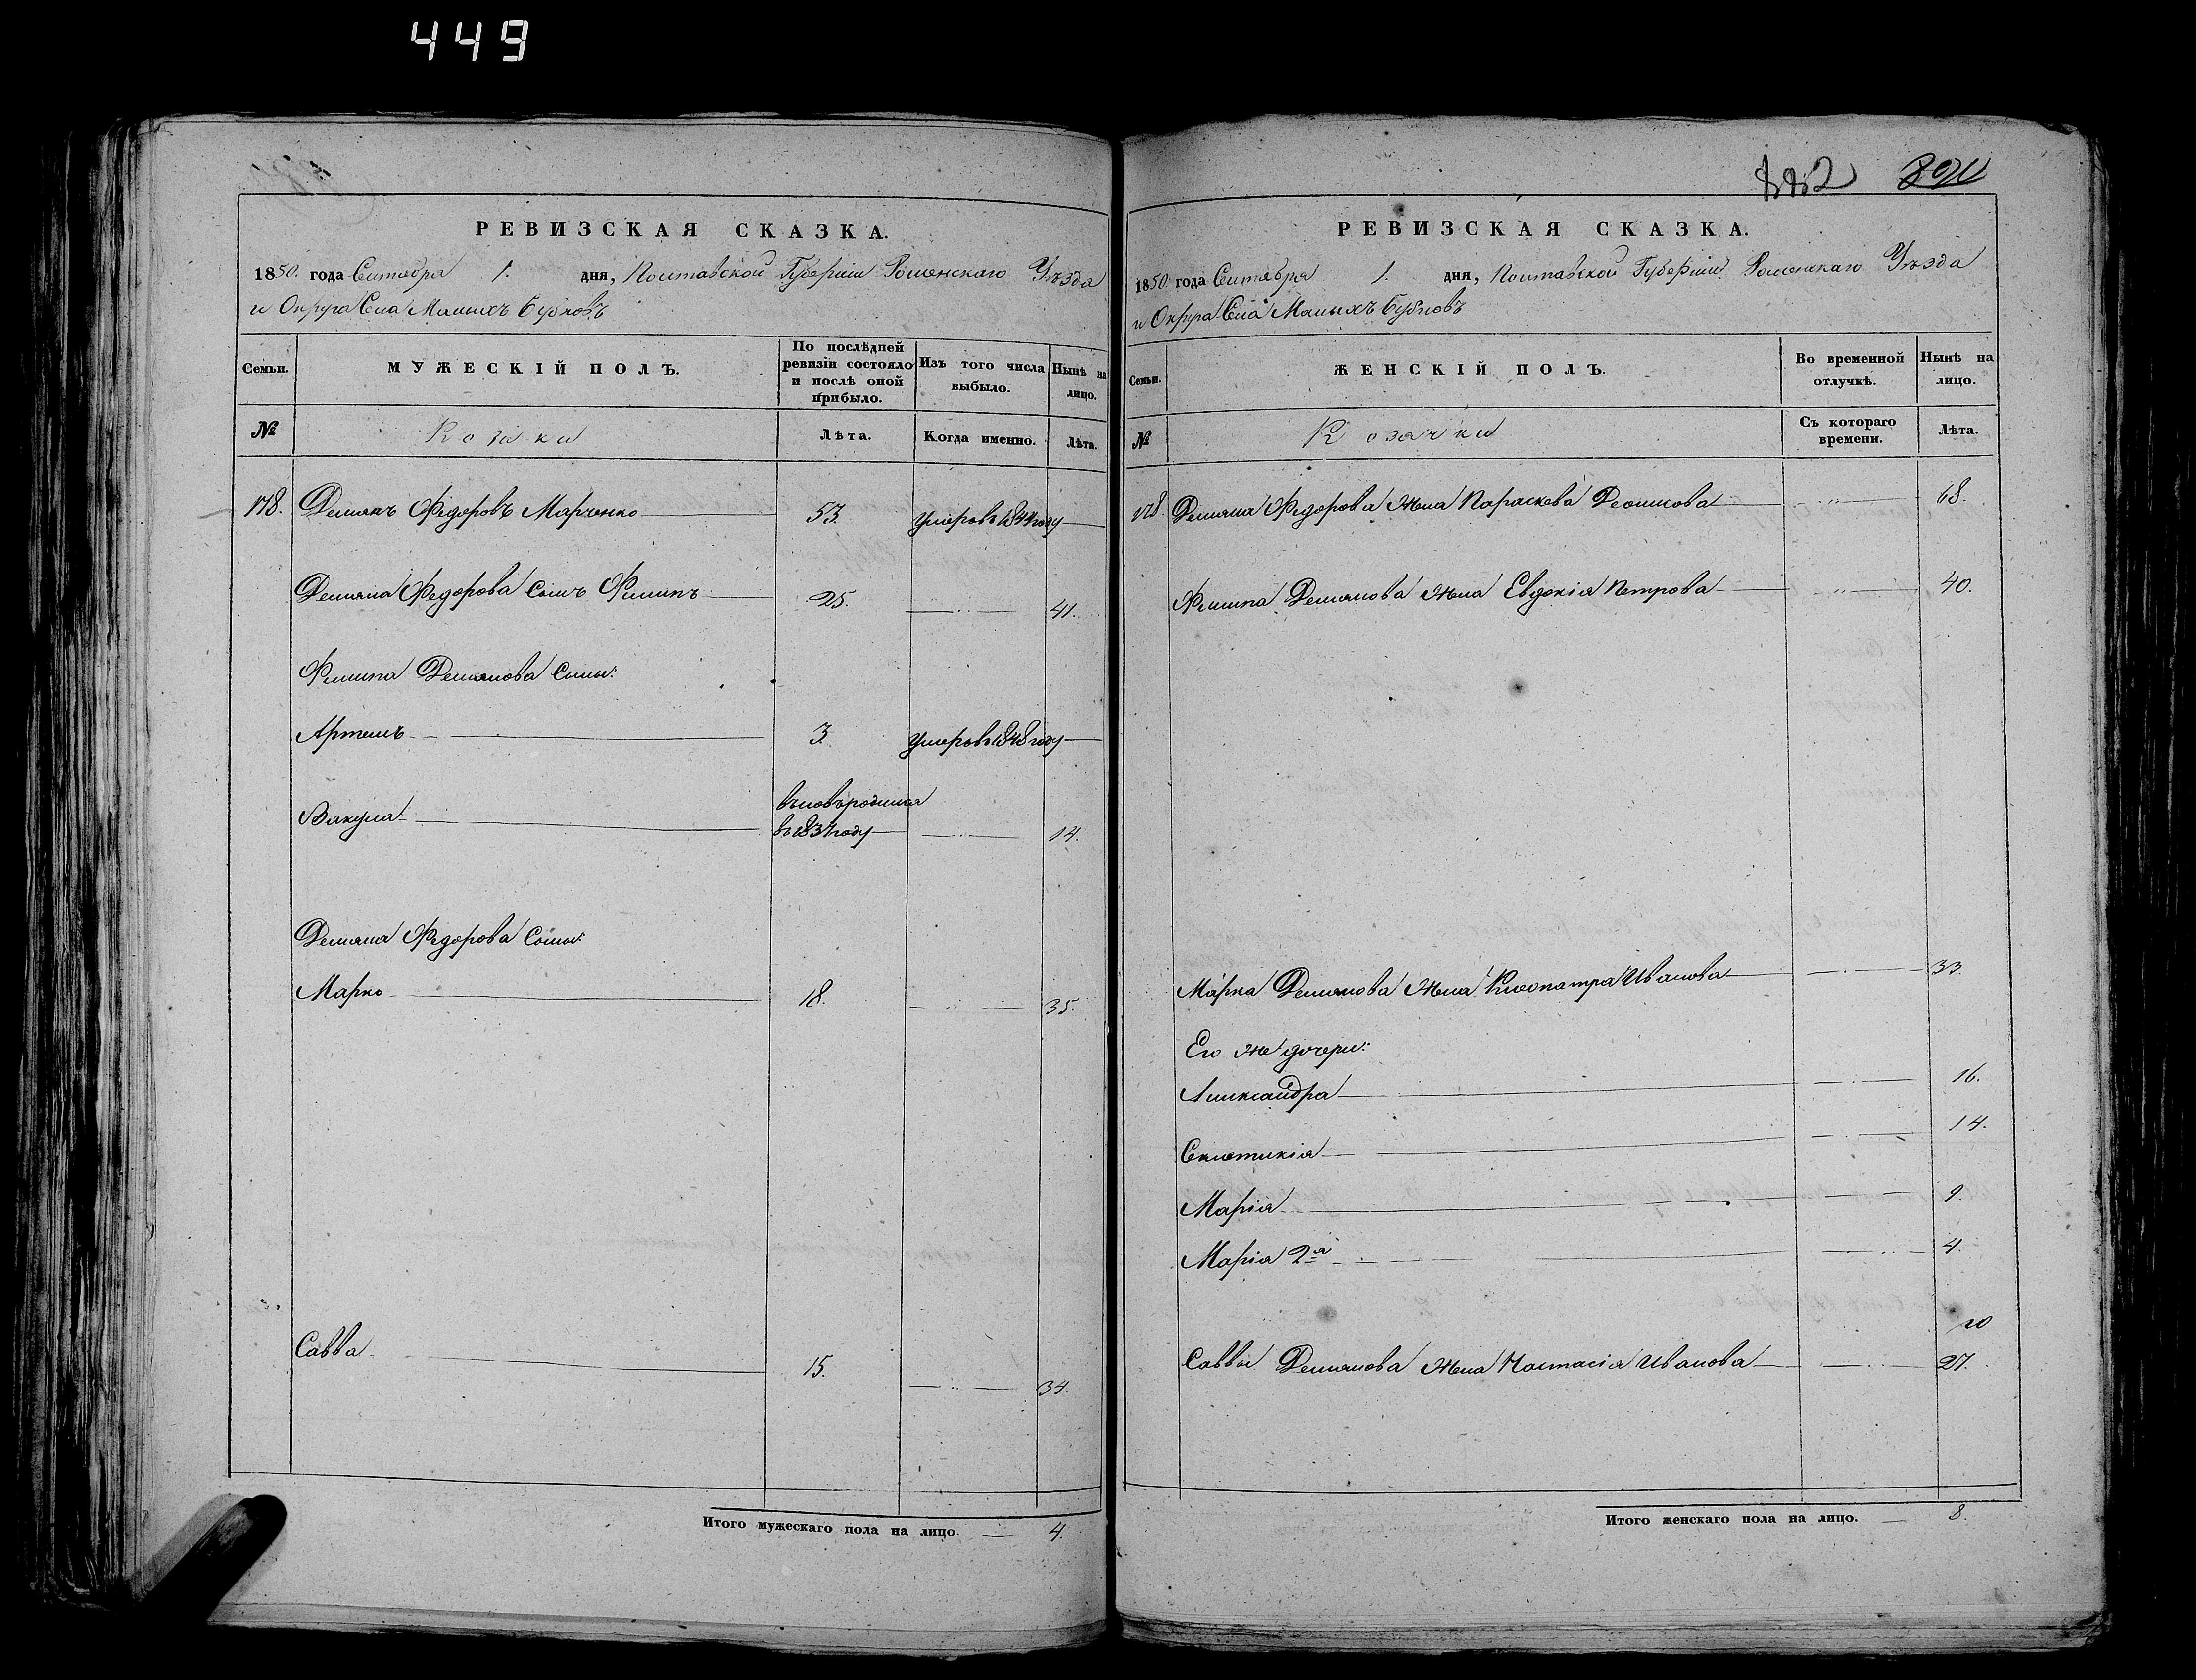 449
РЕВИЗСКАЯ СКАЗКА.
1850. года Сентября 1. дня, Полтавской Губерніи Роменскаго Уѣзда
и Округа Села Малыхъ Бубновъ
Семьи.
МУЖЕСКІЙ ПОЛЪ.
По послѣдней ревизіи состояло и послѣ оной прибыло.
Изъ того числа выбыло.
Нынѣ на лицо.
№
Козаки
Лѣта.
Когда именно.
Лѣта.
178. Демянъ Федоровъ Марченко 53. умеръ в 1844 году
Демяна Федорова сынъ Филипъ 25. 41.
Филипа Демянова сыны:
Артемъ 3. умеръ в 1848 году
Вакула
вновь родился
въ 1837 году 14.
Демяна Федорова сыны:
Марко 18. 35.
Савва 15. 34.
Итого мужескаго пола на лицо. 4.
882 890
РЕВИЗСКАЯ СКАЗКА.
1850 года Сентября 1. дня, Полтавской Губерніи Роменскаго Уѣзда
и Округа Села Малыхъ Бубновъ
Семьи.
ЖЕНСКІЙ ПОЛЪ.
Во временной отлучкѣ.
Нынѣ на лицо.
№
Козачки
Съ котораго времени.
Лѣта.
178. Демяна Федорова жена Параскева Леонтова 68.
Филипа Демянова жена Евдокія Петрова 40.
Марка Демянова жена Клеопатра Иванова 33.
Его же дочери:
Александра 16.
Синклетикія 14.
Марія 9.
Марія 2я 4.
Саввы Демянова жена Настасія Иванова 27.
Итого женскаго пола на лицо. 8.